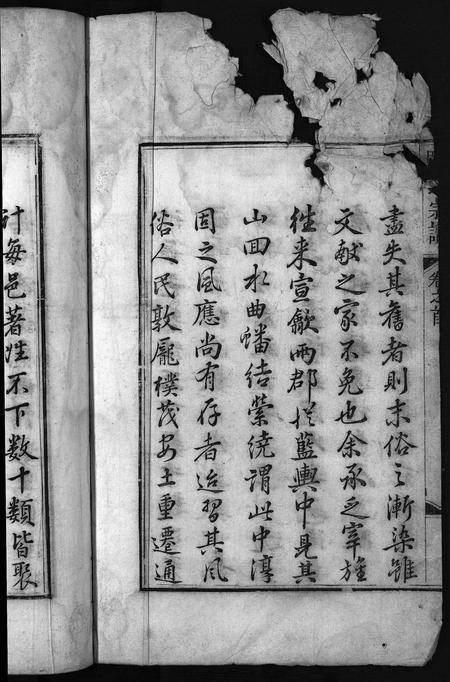 宗譜 卷之首
盡失其舊者則末俗之漸染雖
文献之家不免也余承乏宰旌
徃来宣歙兩郡扵藍輿中見其
山囬水曲蟠結縈繞謂此中淳
固之風應尚有存者迨習其風
俗人民敦厖樸茂安土重遷通
計每邑著姓不下数十類皆聚